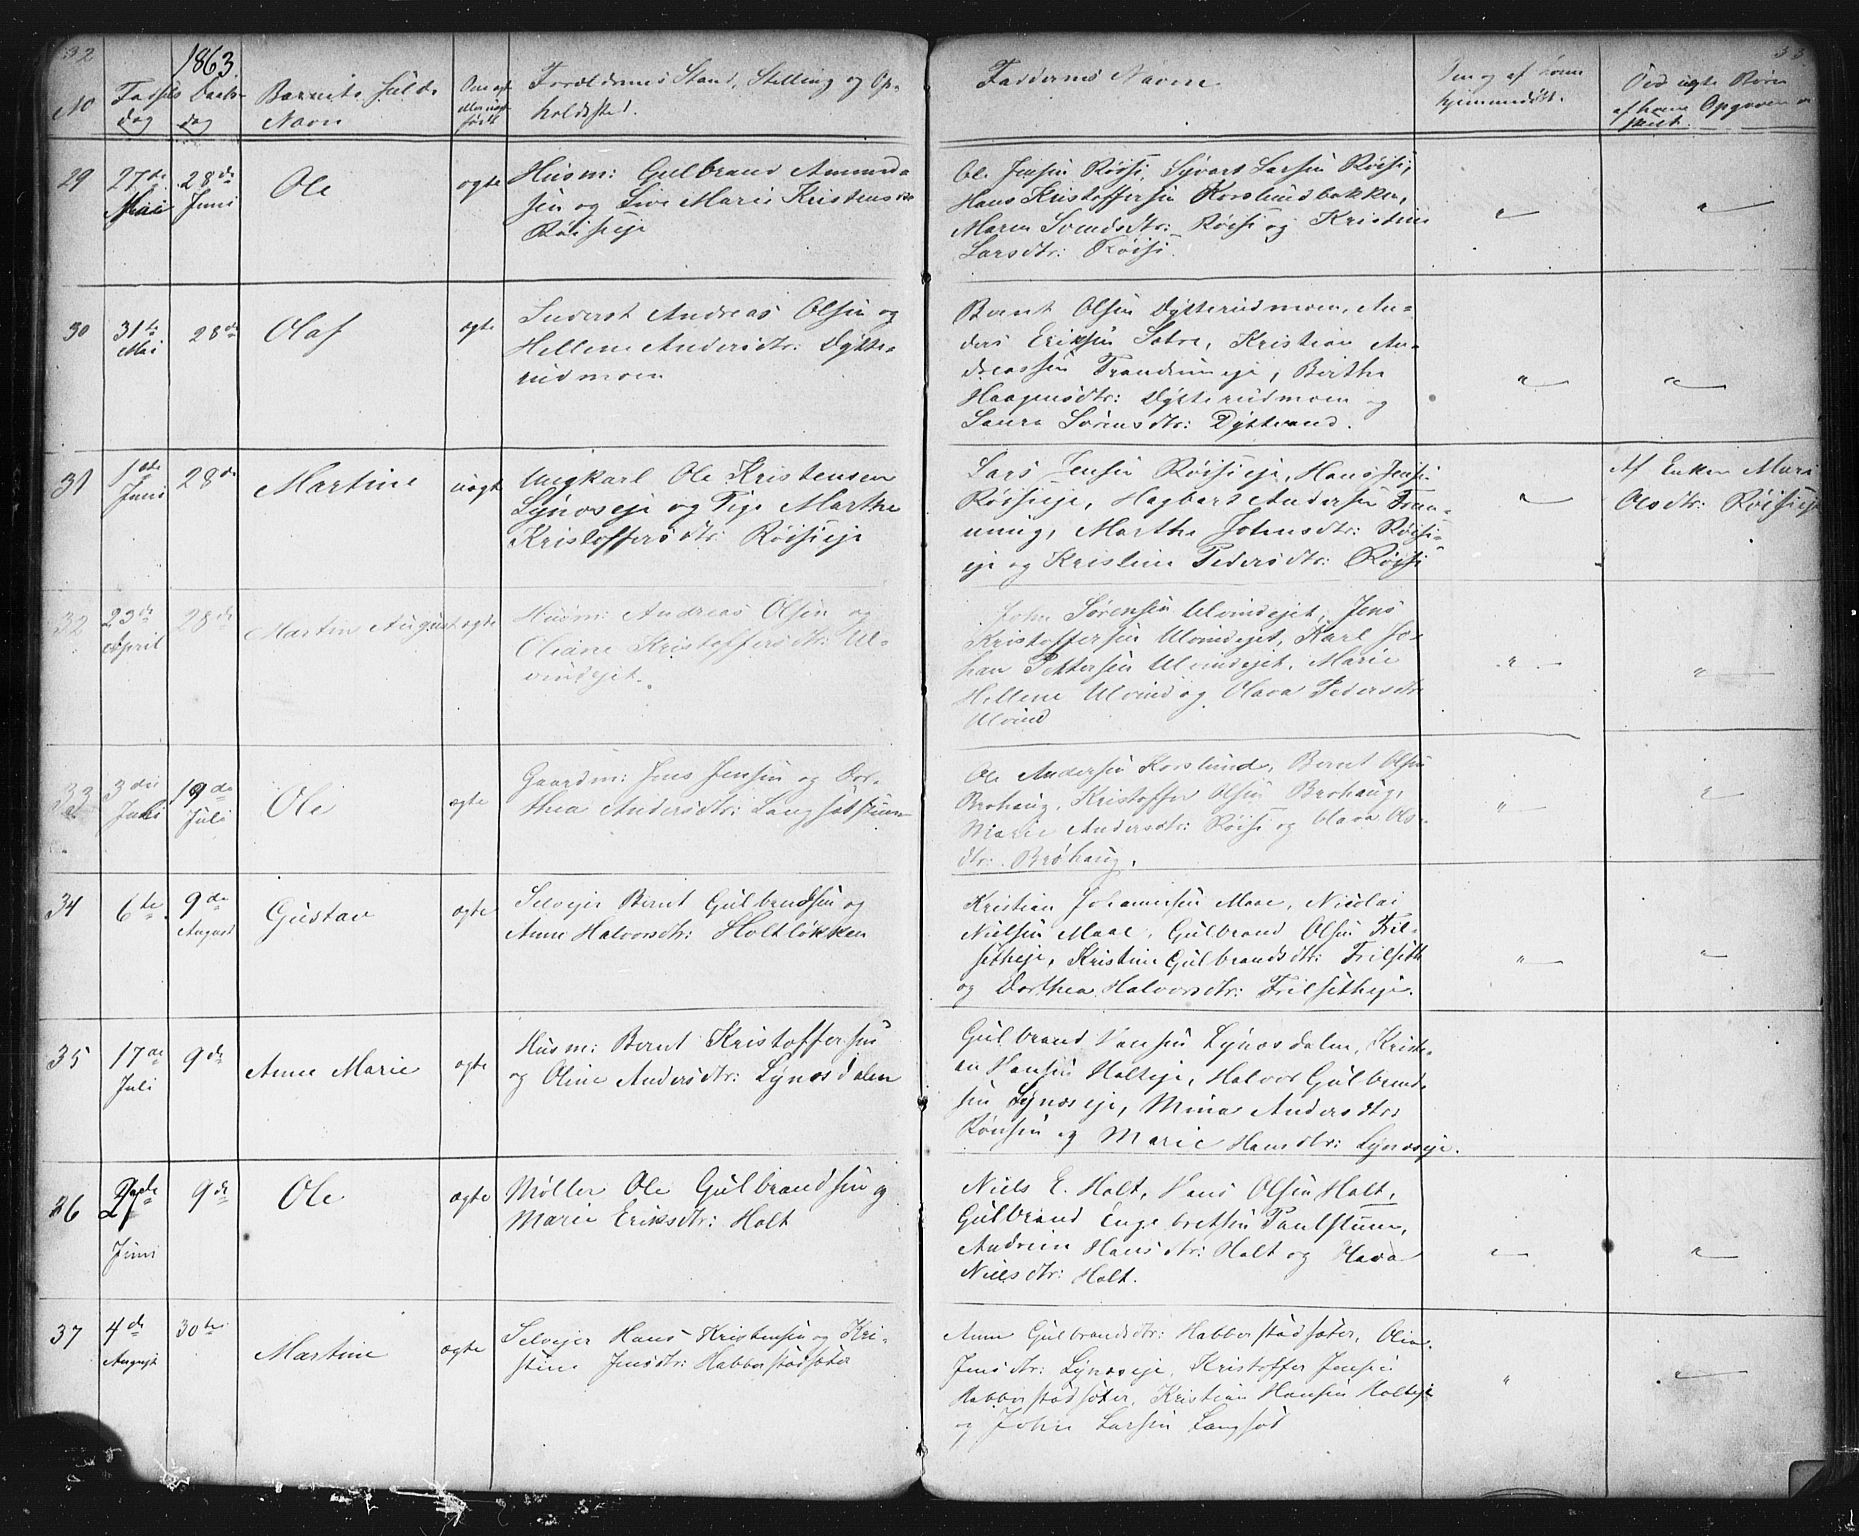 32
1863
No
Fødsels dag
Daabs dag
Barnets fulde Navn
Om ægte eller uægte født
Forældrenes Stand, Stilling og Opholdssted.
Faddernes Navne
Om og af hvem hjemmedøbt.
Ved uægte Børn af hvem Opgaven er skeet.
33
29
27de Mai
28de Juni
Ole
ægte
Husm: Gulbrand Amunds
sen og Live Marie Kristensdtr
Røisieje
Ole Jensen Røisi, Syvart Larsen Røisi,
Hans Kristoffersen Korslundbakken,
Maren Svendsdtr: Røisi og Kristine
Larsdtr: Røisi.
"
"
30
31te Mai
28de
Olaf
ægte
Inderst Andreas Olsen og
Hellene Andersdtr: Dytte-
rudmoen
Bernt Olsen Dytterudmoen, An-
ders Eriksen Sætre, Kristian An-
dreassen Trandumeje, Berthe
Haagensdtr: Dytterudmoen og
Laura Sørensdtr: Dytterud.
"
"
31
1de Juni
28de
Martine
uægte
Ungkarl Ole Kristensen
Lynæseje og Pige Marthe
Kristoffersdtr: Røisieje
Lars Jensen Røisieje, Hans Jensen
Røisieje, Hagbart Andersen
Marthe Johnsdtr: Røisi-
eje og Kristine Pedersdtr: Røisi
"
Af Enken Mari
Olsdtr: Røisieje
32
23de April
28de
Martin August
ægte
Husm: Andreas Olsen og
Oliane Kristoffersdtr: Ul-
vindejet.
John Sørensen Ulvindejet, Jens
Kristoffersen Ulvindejet, Karl Jo-
han Pettersen Ulvindejet, Marie
Hellene Ulvind og Olava Pedersdtr
Ulvind
"
"
33
3die Juli
19de Juli
Ole
ægte
Gaardm: Jens Jensen og Dor-
thea Andersdtr: Langsætstuen
Ole Andersen Korslund, Bernt Olsen
Brøhaug, Kristoffer Olsen Brøhaug,
Marie Andersdtr: Røisi og Olava Ols-
dtr: Brøhaug.
"
"
34
6te
9de August
Gustav
ægte
Selvejer Bernt Gulbrandsen og
Anne Halvorsdtr: Holtløkken
Kristian Johannesen Maae, Nicolai
Nielsen Maae, Gulbrand Olsen Fril-
setheje, Kristine Gulbrandsdtr: Frilseth
og Dorthea Halvorsdtr: Frilsetheje.
"
"
35
17de Juli
9de
Anne Marie
ægte
Husm: Bernt Kristoffersen
og Oline Andersdtr: Lynæsdalen
Gulbrand Hansen Lynæsdalen, Kristi-
an Hansen Holteje, Halvor Gulbrand-
sen Lynæseje, Mina Andersdtr:
og Marie Hansdtr: Lynæseje.
36
Juni
9de
Ole
ægte
Møller Ole Gulbrandsen og
Marie Eriksdtr: Holt
Niels E. Holt, Hans Olsen Holt,
Gulbrand Engebretsen Paulstuen,
Andrine Hansdtr: Holt og Olava
Nielsdtr: Holt.
"
"
37
4de August
30te
Martine
ægte
Selvejer Hans Kristensen og Kri-
stine Jensdtr: Habberstadsæter
Anne Gulbrandsdtr: Habberstadsæter, Olia
Jensdtr: Lynæseje, Kristoffer Jensen
Habberstadsæter, Kristian Hansen Holteje
og John Larsen Langsæt
"
"